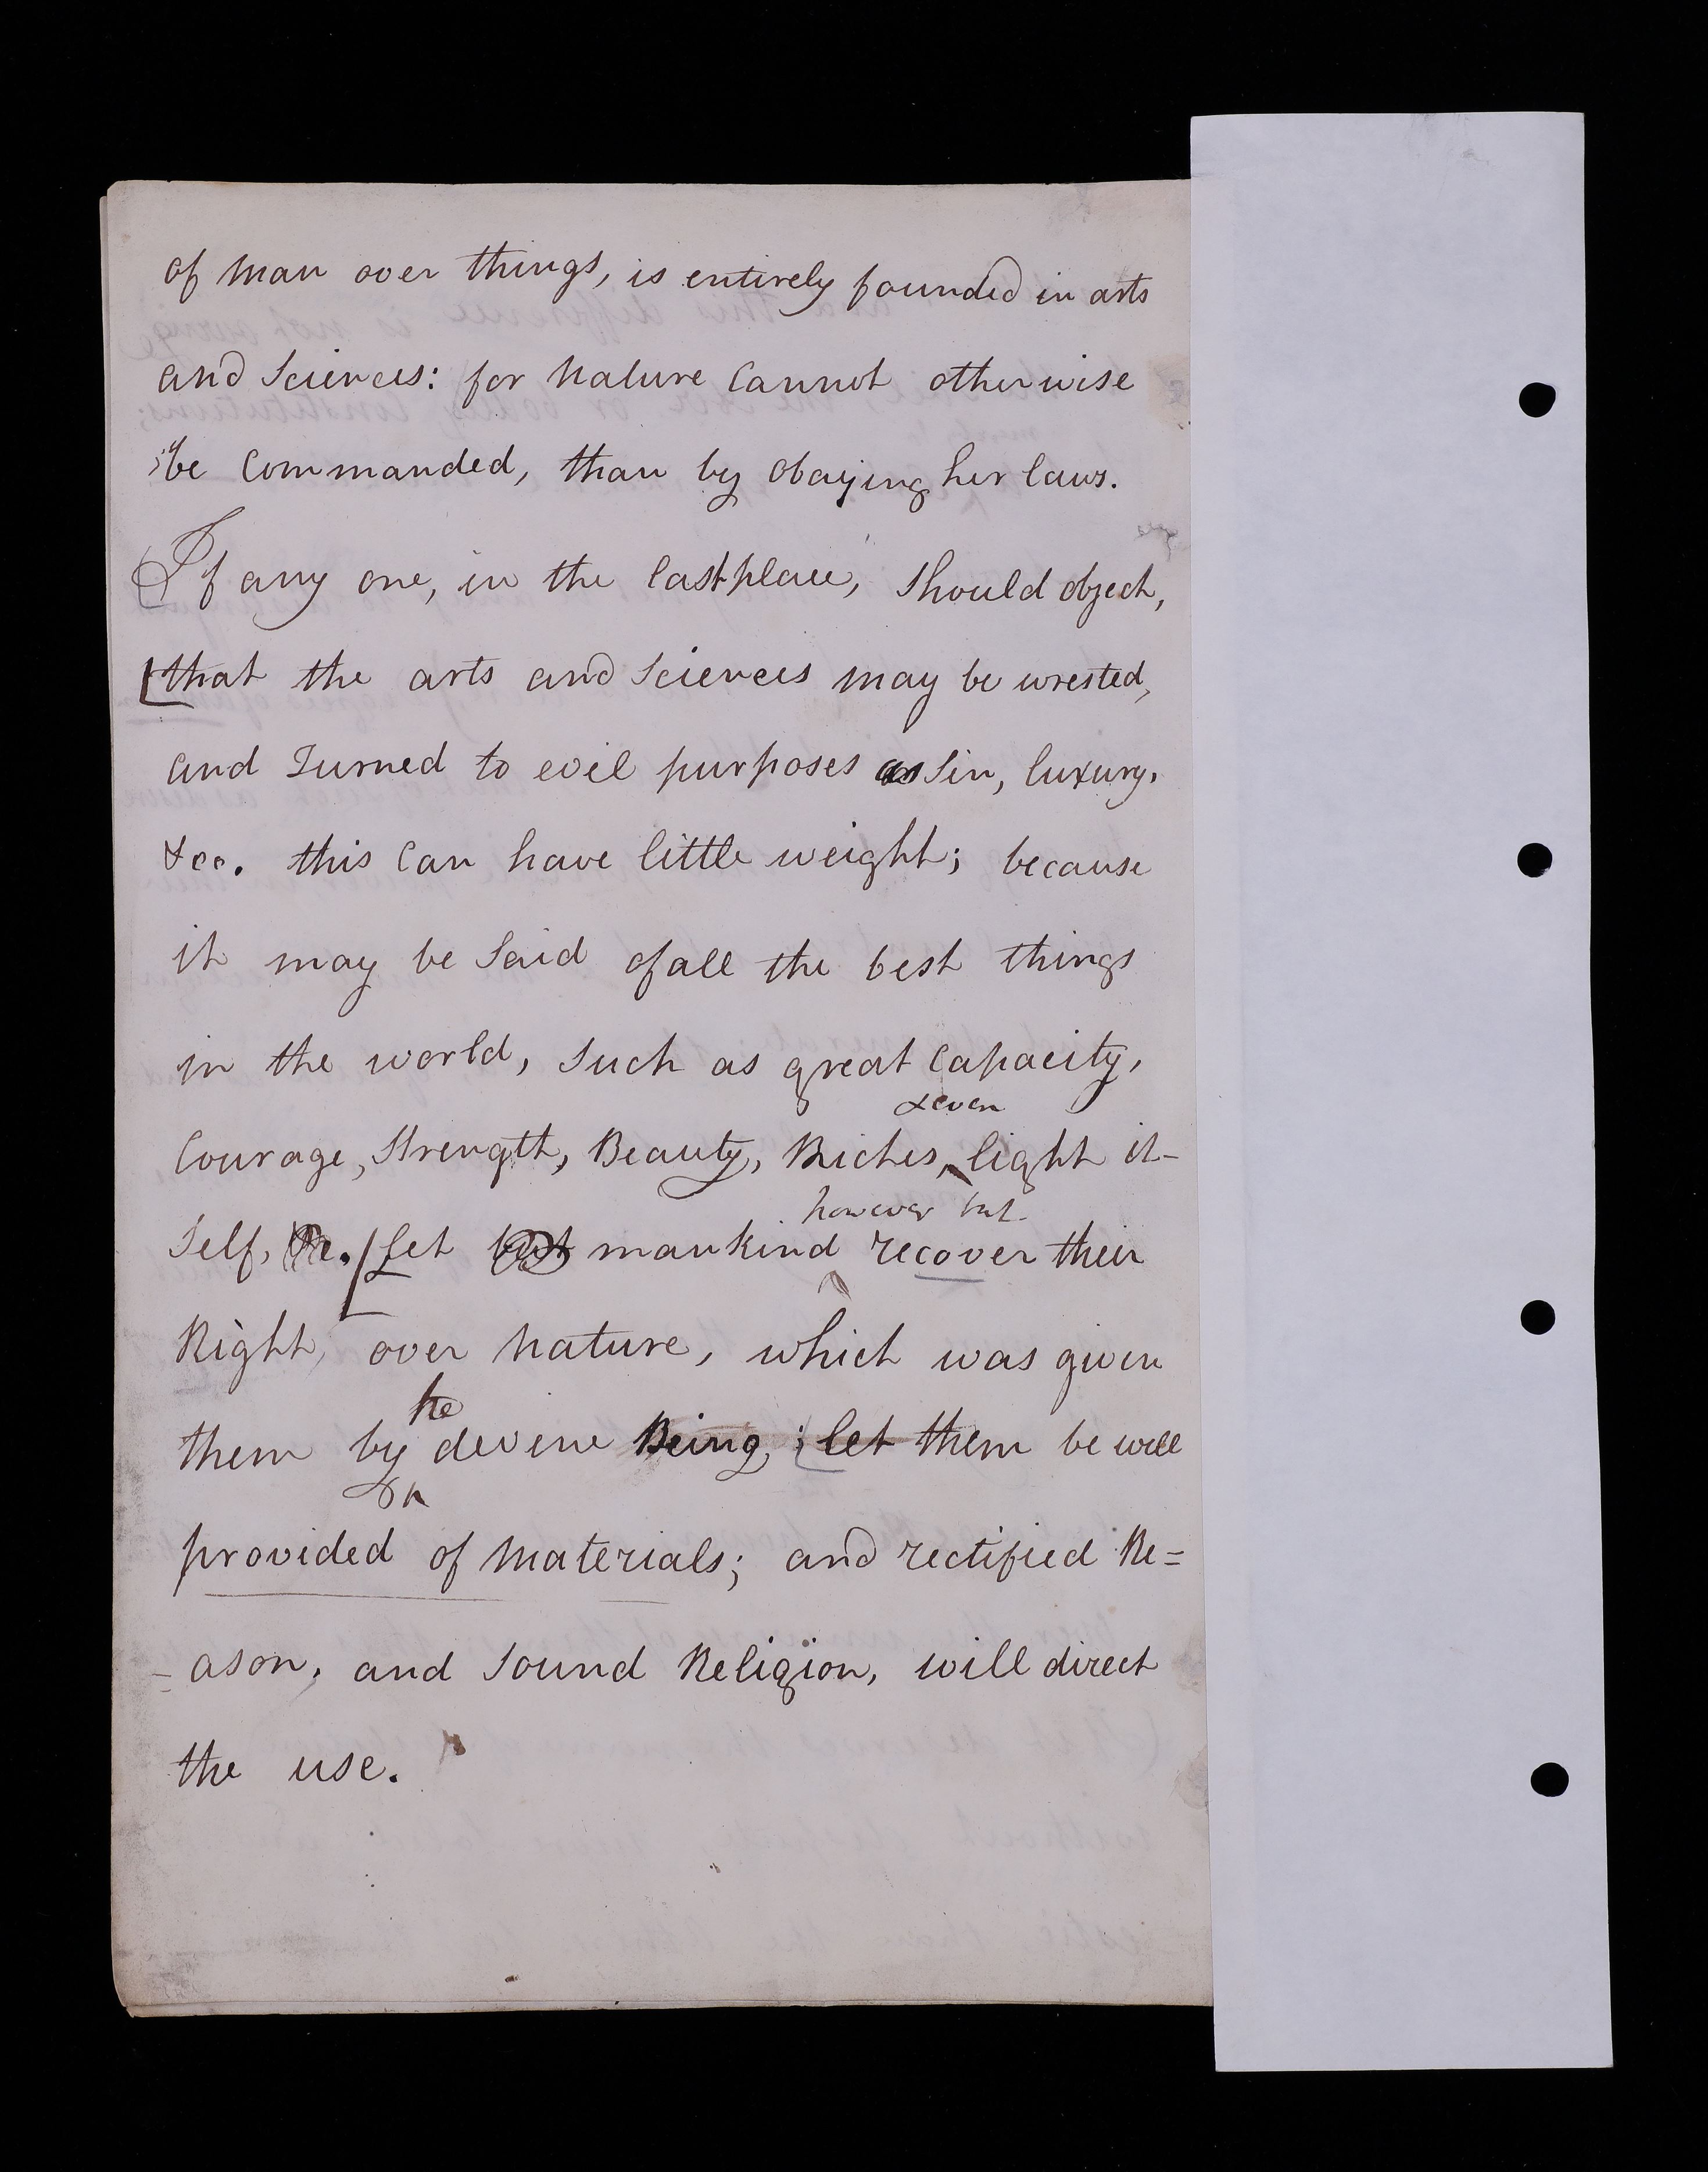 of man over things, is entirely founded in arts
and Sciences: for nature cannot otherwise
be Commanded, than by obaying her laws.
If any one, in the last place, should object,
that the arts and Sciences may be wrested,
and Turned to evil purposes as Sin, luxury,
&cc. this Can have little weight; because
it may be Said of all the best things
in the world, Such as great Capacity,
& even
Courage, Strength, Beauty, Riches, light it-
however but
Self, &c. Let but mankind recover their
Right, over nature, which was given
he
them by devine Being; let them be well
provided of materials; and rectified Re=
-ason, and Sound Religion, will direct
the use.